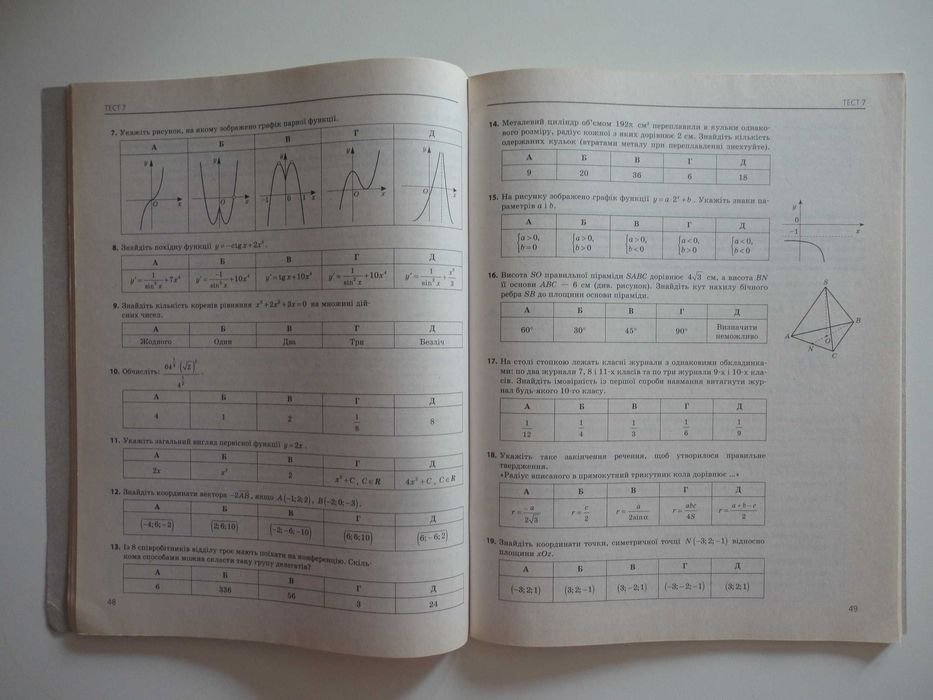 ТЕСТ 7
7. Укажіть рисунок, на якому зображено графік парної функції.
А Б В Г Д
y y y y y
O x O x −1 0 1 x O x O x
8. Знайдіть похідну функції y=−ctg x+2x⁵.
А Б В Г Д
y′=1/sin² x+7x⁴ y′=−1/sin² x+10x⁴ y′=tg x+10x⁴ y′=1/sin² x+10x⁴
9. Знайдіть кількість коренів рівняння x³+2x²+3x=0 на множині дій-
сних чисел.
А Б В Г Д
Жодного Один Два Три Безліч
10. Обчисліть:
А Б В Г Д
4 1 2 1/8 8
11. Укажіть загальний вигляд первісної функції y=2x.
А Б В Г Д
2x x² 2 x²+C, C∈R 4x²+C, C∈R
12. Знайдіть координати вектора −2AB, якщо A(−1;2;2), B(−2;0;−3).
А Б В Г Д
(−4;6;−2) (2;6;10) (−2;−6;−10) (6;6;10) (6;−6;2)
13. Із 8 співробітників відділу троє мають поїхати на конференцію. Скіль-
кома способами можна скласти таку групу делегатів?
А Б В Г Д
6 336 56 3 24
48
ТЕСТ 7
14. Металевий циліндр об'ємом 192π см³ переплавили в кульки однако-
вого розміру, радіус кожної з яких дорівнює 2 см. Знайдіть кількість
одержаних кульок (втратами металу при переплавленні знехтуйте).
А Б В Г Д
9 20 36 6 18
15. На рисунку зображено графік функції y=a·2ˣ+b. Укажіть знаки па-
раметрів a і b.
А Б В Г Д
{a>0, {a>0, {a>0, {a<0, {a<0,
b=0 b>0 b<0 b>0 b<0
y
0 x
−1
16. Висота SO правильної піраміди SABC дорівнює 4√3 см, а висота BN
її основи ABC — 6 см (див. рисунок). Знайдіть кут нахилу бічного
ребра SB до площини основи піраміди.
А Б В Г Д
60° 30° 45° 90° Визначити
неможливо
S
B
A O
N C
17. На столі стопкою лежать класні журнали з однаковими обкладинка-
ми: по два журнали 7, 8 і 11-х класів та по три журнали 9-х і 10-х кла-
сів. Знайдіть імовірність із першої спроби навмання витягнути жур-
нал будь-якого 10-го класу.
А Б В Г Д
1/12 1/4 1/3 1/6 1/9
18. Укажіть таке закінчення речення, щоб утворилося правильне
твердження.
«Радіус вписаного в прямокутний трикутник кола дорівнює ...»
А Б В Г Д
r=a/2√3 r=c/2 r=a/2sinα r=abc/4S r=a+b−c/2
19. Знайдіть координати точки, симетричної точці N(−3;2;−1) відносно
площини xOz.
А Б В Г Д
(−3;2;1) (3;2;−1) (3;−2;1) (−3;−2;−1) (3;2;1)
49